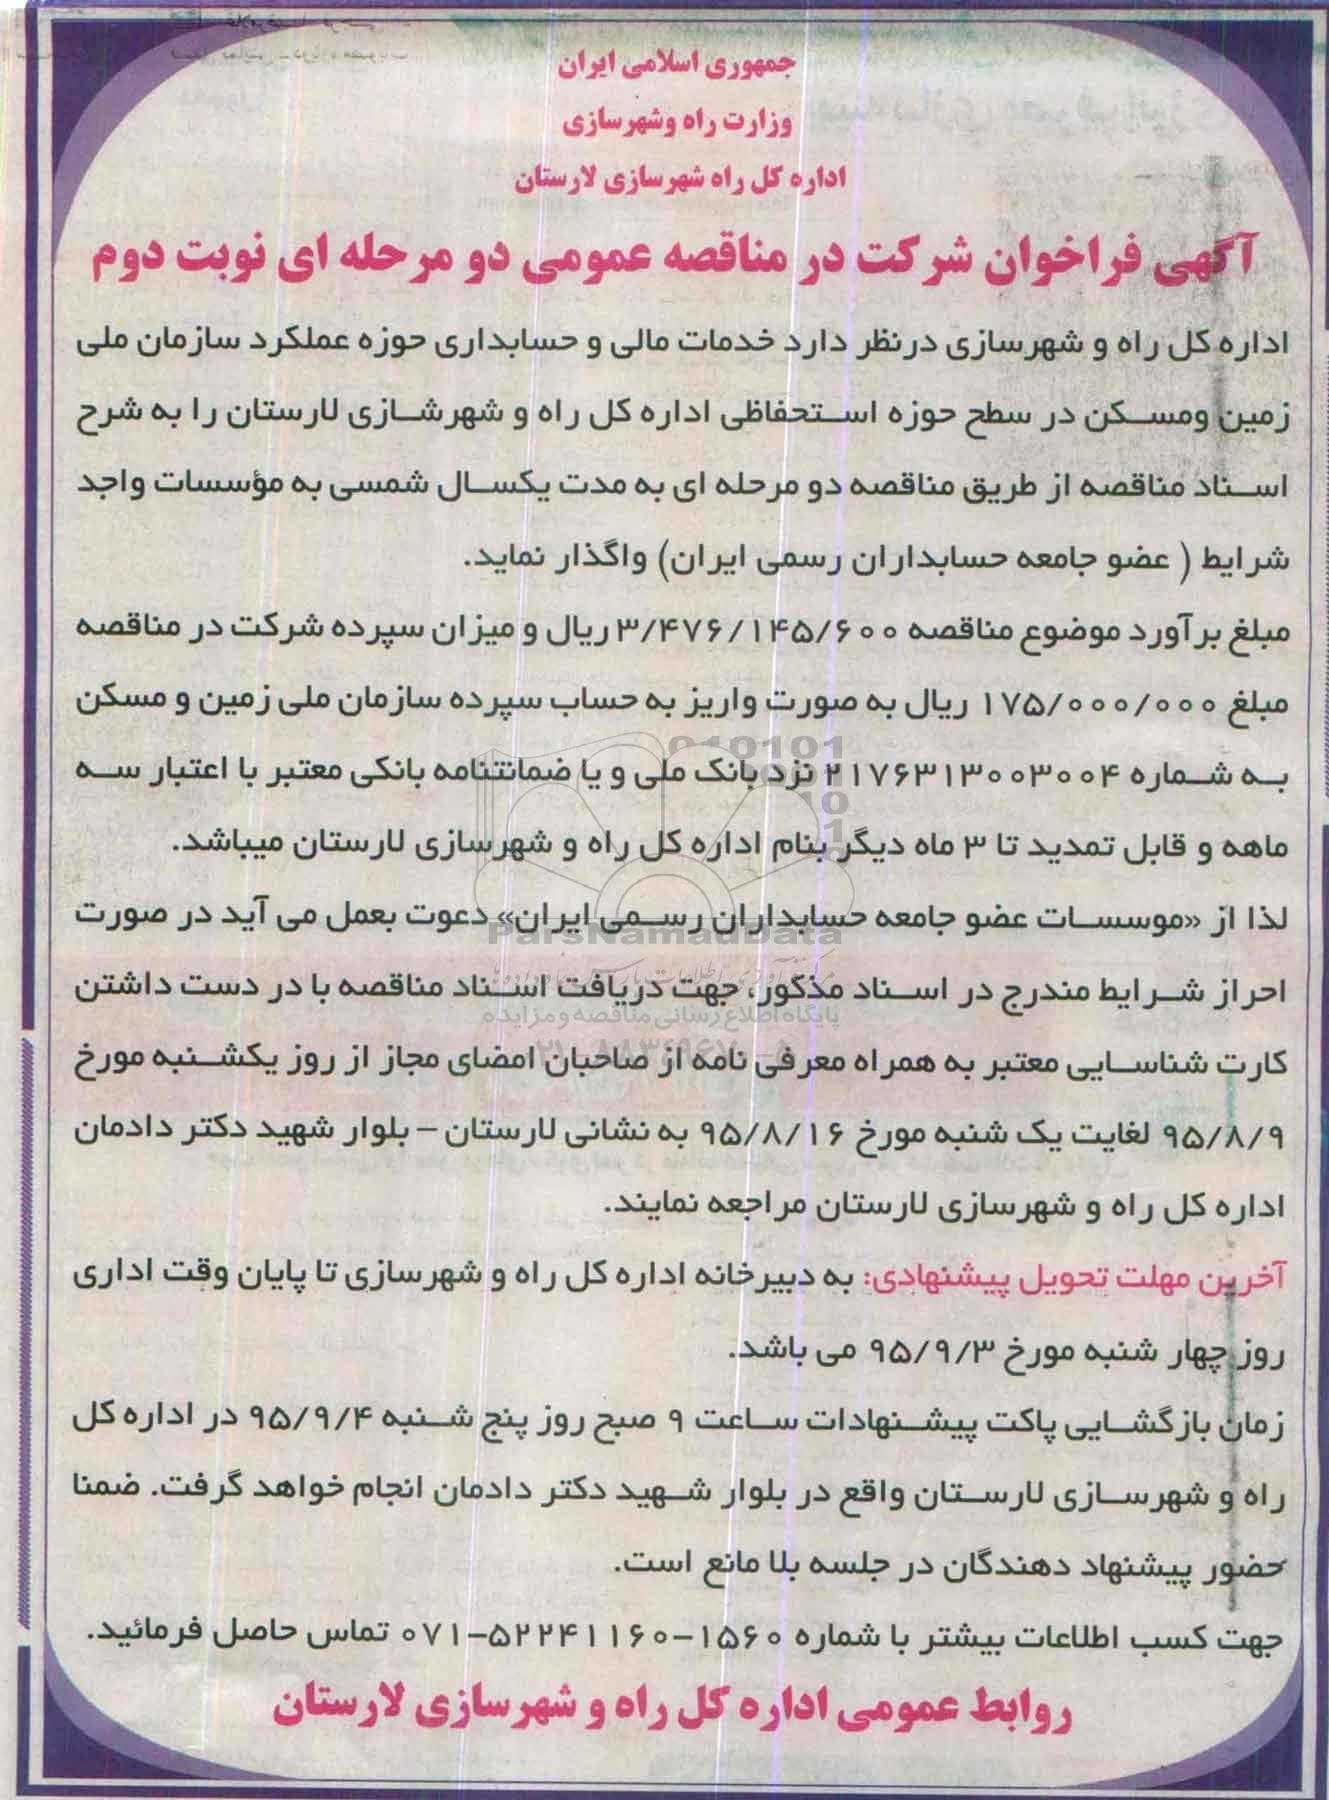 جمهوری اسلامی ایران
وزارت راه وشهرسازی
اداره کل راه شهرسازی لارستان
آگهی فراخوان شرکت در مناقصه عمومی دو مرحله ای نوبت دوم
اداره کل راه و شهرسازی درنظر دارد خدمات مالی و حسابداری حوزه عملکرد سازمان ملی
زمین ومسکن در سطح حوزه استحفاظی اداره کل راه و شهرشازی لارستان را به شرح
اسناد مناقصه از طریق مناقصه دو مرحله ای به مدت یکسال شمسی به مؤسسات واجد
شرایط ( عضو جامعه حسابداران رسمی ایران) واگذار نماید.
مبلغ برآورد موضوع مناقصه ۳/۴۷۶/۱۴۵/۶۰۰ ریال و میزان سپرده شرکت در مناقصه
مبلغ ۱۷۵/۰۰۰/۰۰۰ ریال به صورت واریز به حساب سپرده سازمان ملی زمین و مسکن
به شماره ۲۱۷۶۳۱۳۰۰۳۰۰۴ نزد بانک ملی و یا ضمانتنامه بانکی معتبر با اعتبار سه
ماهه و قابل تمدید تا ۳ ماه دیگر بنام اداره کل راه و شهرسازی لارستان میباشد.
لذا از «موسسات عضو جامعه حسابداران رسمی ایران» دعوت بعمل می آید در صورت
احراز شرایط مندرج در اسناد مذکور، جهت دریافت اسناد مناقصه با در دست داشتن
کارت شناسایی معتبر به همراه معرفی نامه از صاحبان امضای مجاز از روز یکشنبه مورخ
۹۵/۸/۹ لغایت یک شنبه مورخ ۹۵/۸/۱۶ به نشانی لارستان – بلوار شهید دکتر دادمان
اداره کل راه و شهرسازی لارستان مراجعه نمایند.
آخرین مهلت تحویل پیشنهادی: به دبیرخانه اداره کل راه و شهرسازی تا پایان وقت اداری
روز چهار شنبه مورخ ۹۵/۹/۳ می باشد.
زمان بازگشایی پاکت پیشنهادات ساعت ۹ صبح روز پنج شنبه ۹۵/۹/۴ در اداره کل
راه و شهرسازی لارستان واقع در بلوار شهید دکتر دادمان انجام خواهد گرفت. ضمنا
حضور پیشنهاد دهندگان در جلسه بلا مانع است.
جهت کسب اطلاعات بیشتر با شماره ۱۵۶۰-۵۲۲۴۱۱۶۰-۰۷۱ تماس حاصل فرمائید.
روابط عمومی اداره کل راه و شهرسازی لارستان
ParsNamadData
پایگاه اطلاع رسانی مناقصه و مزایده